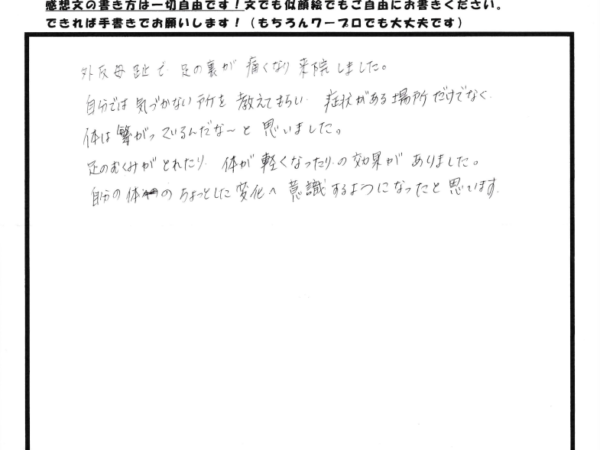 感想文の書き方は一切自由です！文でも似顔絵でもご自由にお書きください。
できれば手書きでお願いします！（もちろんワープロでも大丈夫です）
外反母趾で 足の裏が 痛くなり 来院しました。
自分では 気づかない所を 教えてもらい 症状がある場所だけでなく
体は 繋がっているんだな〜と 思いました。
足のむくみがとれたり 体が 軽くなったりの効果が ありました。
自分の体のちょっとした変化へ 意識するようになったと思います。